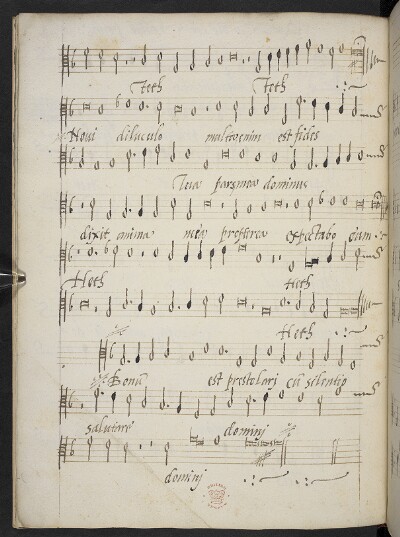 Teth Teth
Novi diluculo multa enim est fides
Tua pars mea dominus
dixit anima mea propterea expectabo eum
Heth Heth
Heth
Bonū est prestolarj cū silentio
salutare dominj
dominj